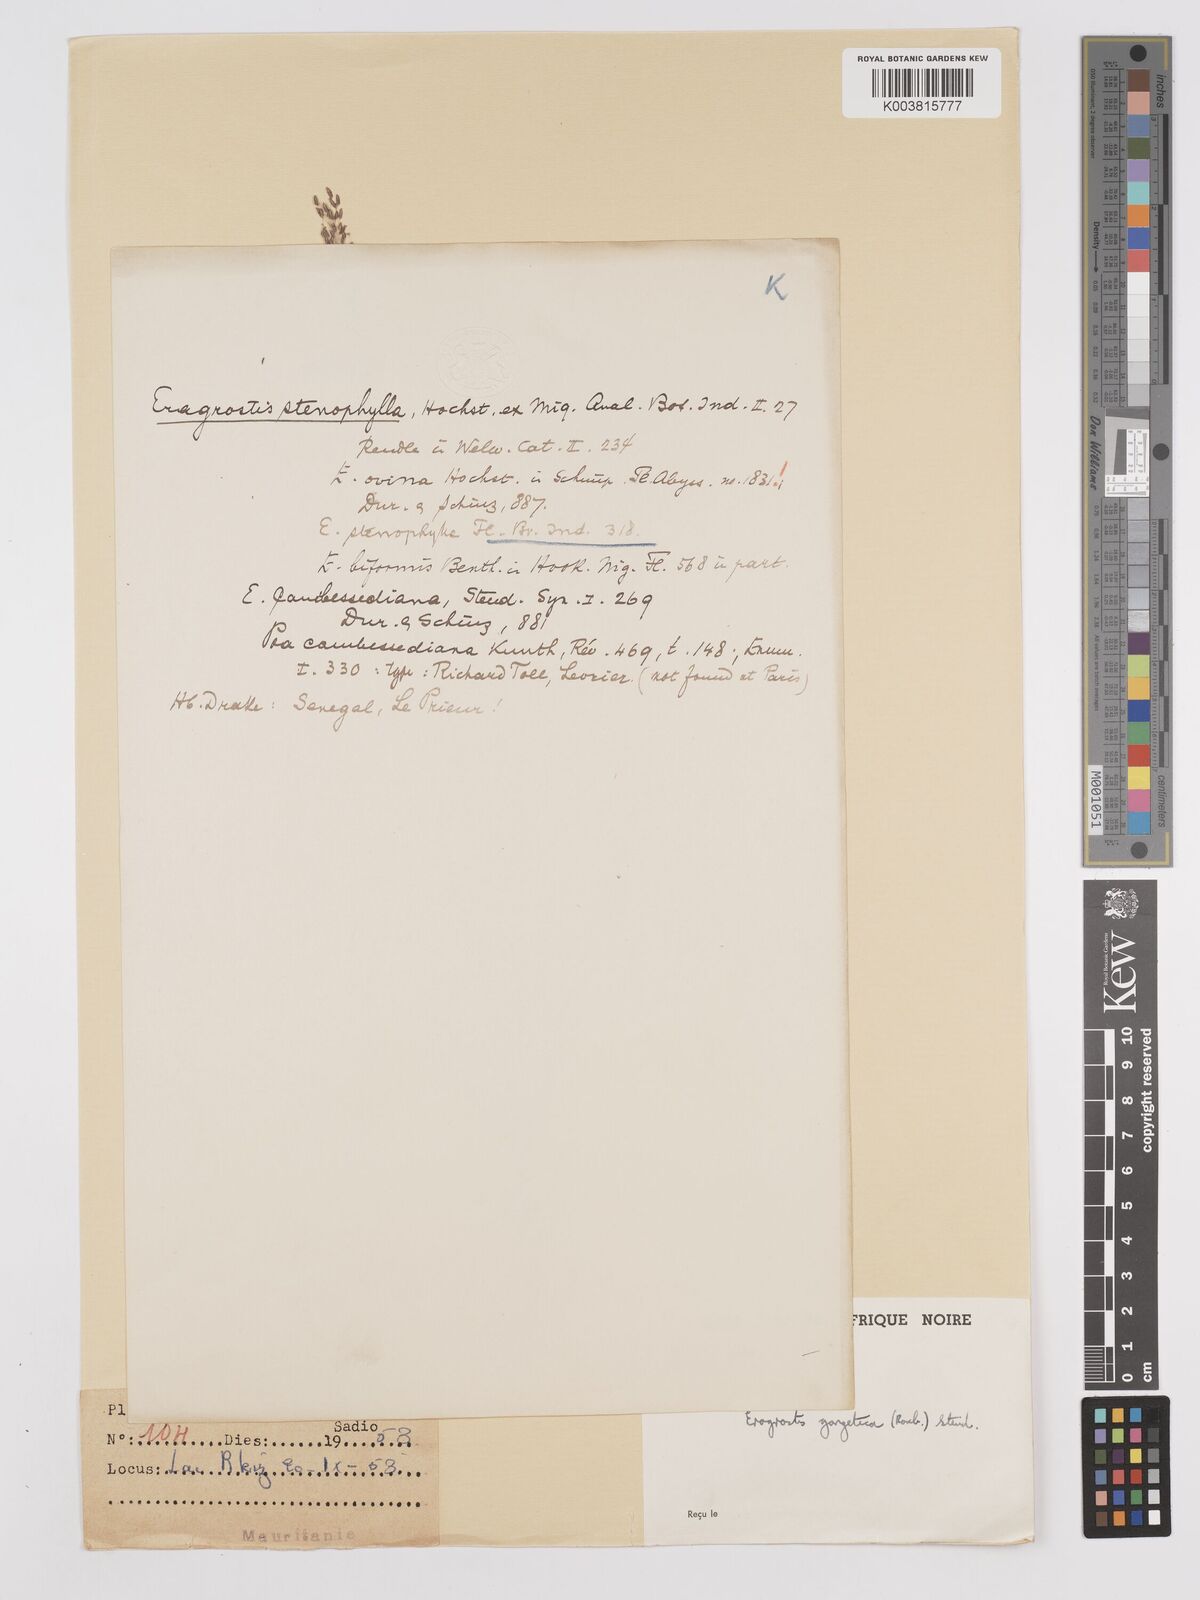 ROYAL BOTANIC GARDENS KEW
K003815777
K
Eragrostis stenophylla, Hochst. ex Miq. Anal. Bot. Ind. II. 27
Rendle in Welw. Cat. II. 234
E. ovina Hochst. in Schimp. Pl. Abyss. no. 1831!
Dur. & Schinz, 887.
E. stenophylla Fl. Br. Ind. 318.
E. biformis Benth. in Hook. Nig. Fl. 568 in part.
E. Cambessediana, Steud. Syn. I. 269
Dur. & Schinz, 881
Poa cambessediana Kunth, Rév. 469, t. 148; Enum.
I. 330 : type : Richard Toll, Leprieur (not found at Paris)
Hb. Drake : Senegal, Le Prieur!
FRIQUE NOIRE
Eragrostis gangetica (Roxb.) Steud.
Reçu le
Pl
Sadio
No: 104 Dies: 19 58
Locus: Lac Rkiz 20-IX-58
Mauritanie
inches
centimeters
Density
Don Williams
M001051
Kew
Royal Botanic Gardens
copyright reserved
0 1 2 3 4 5 6 7 8 9 10
cm